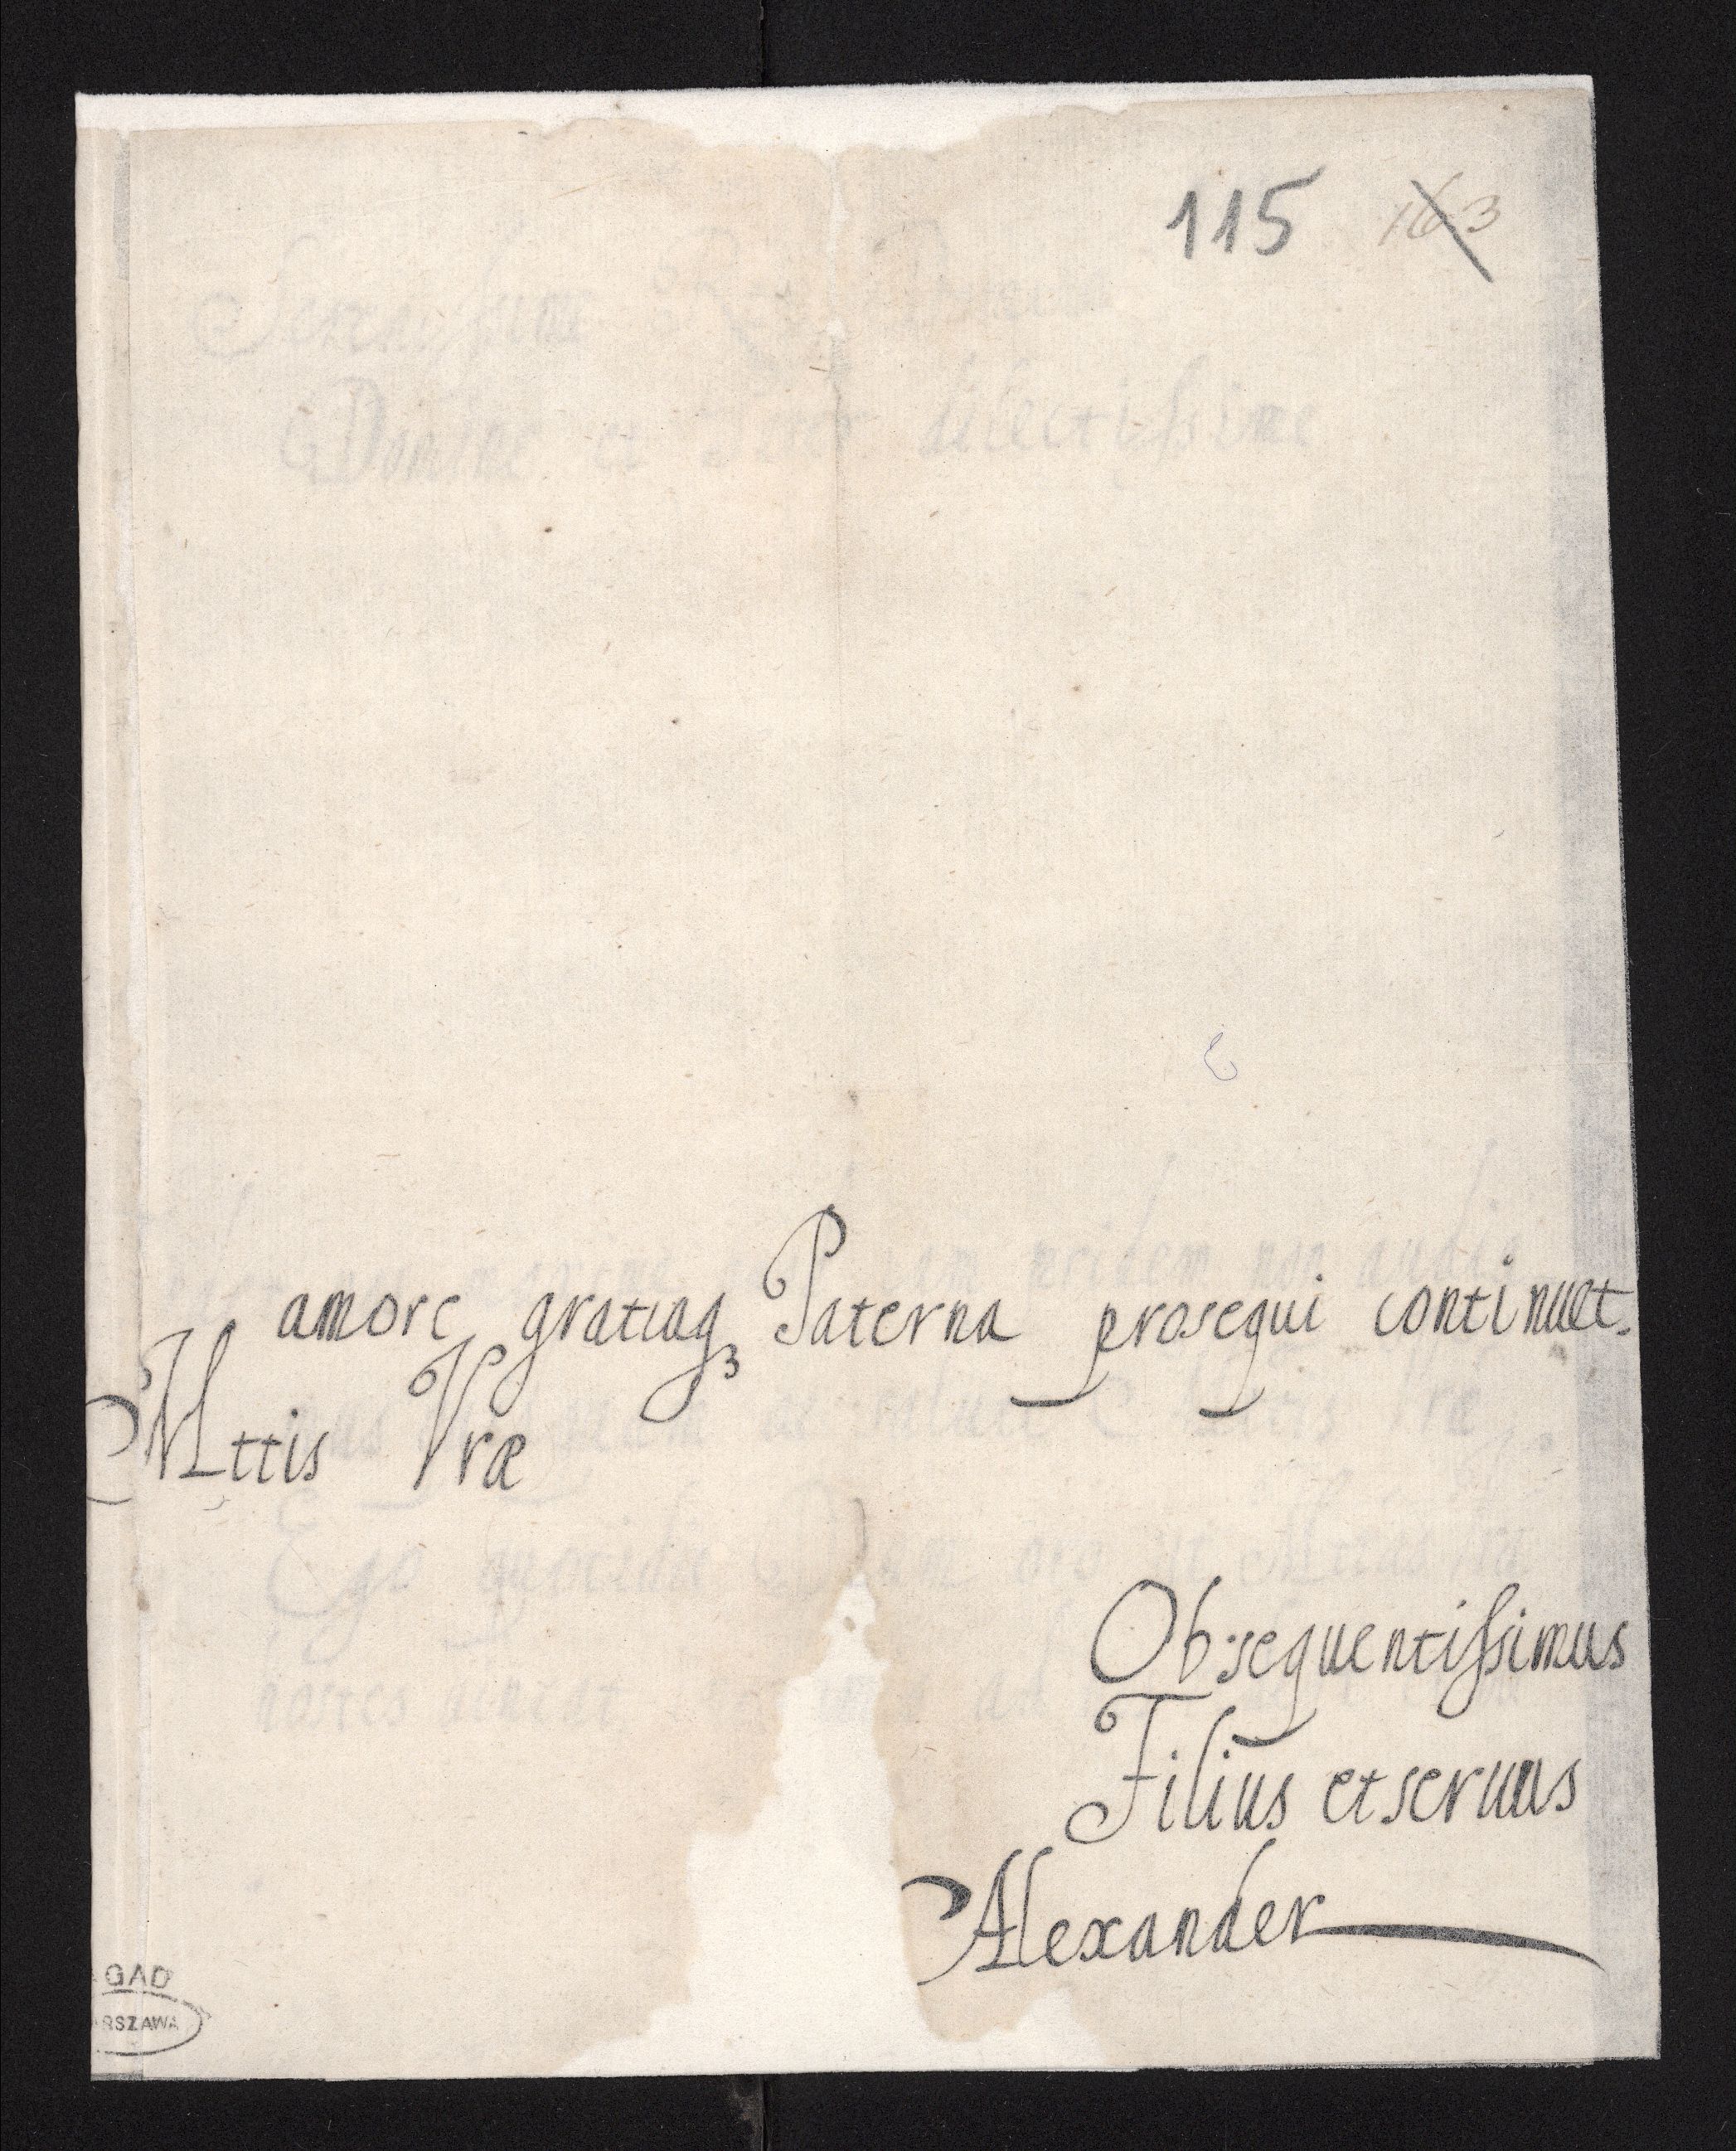 115 163
amore gratiaq3 Paterna prosequi continuet.
Mttis Vræ
Obsequentissimus
Filius et seruus
Alexander
GAD
RSZAWA